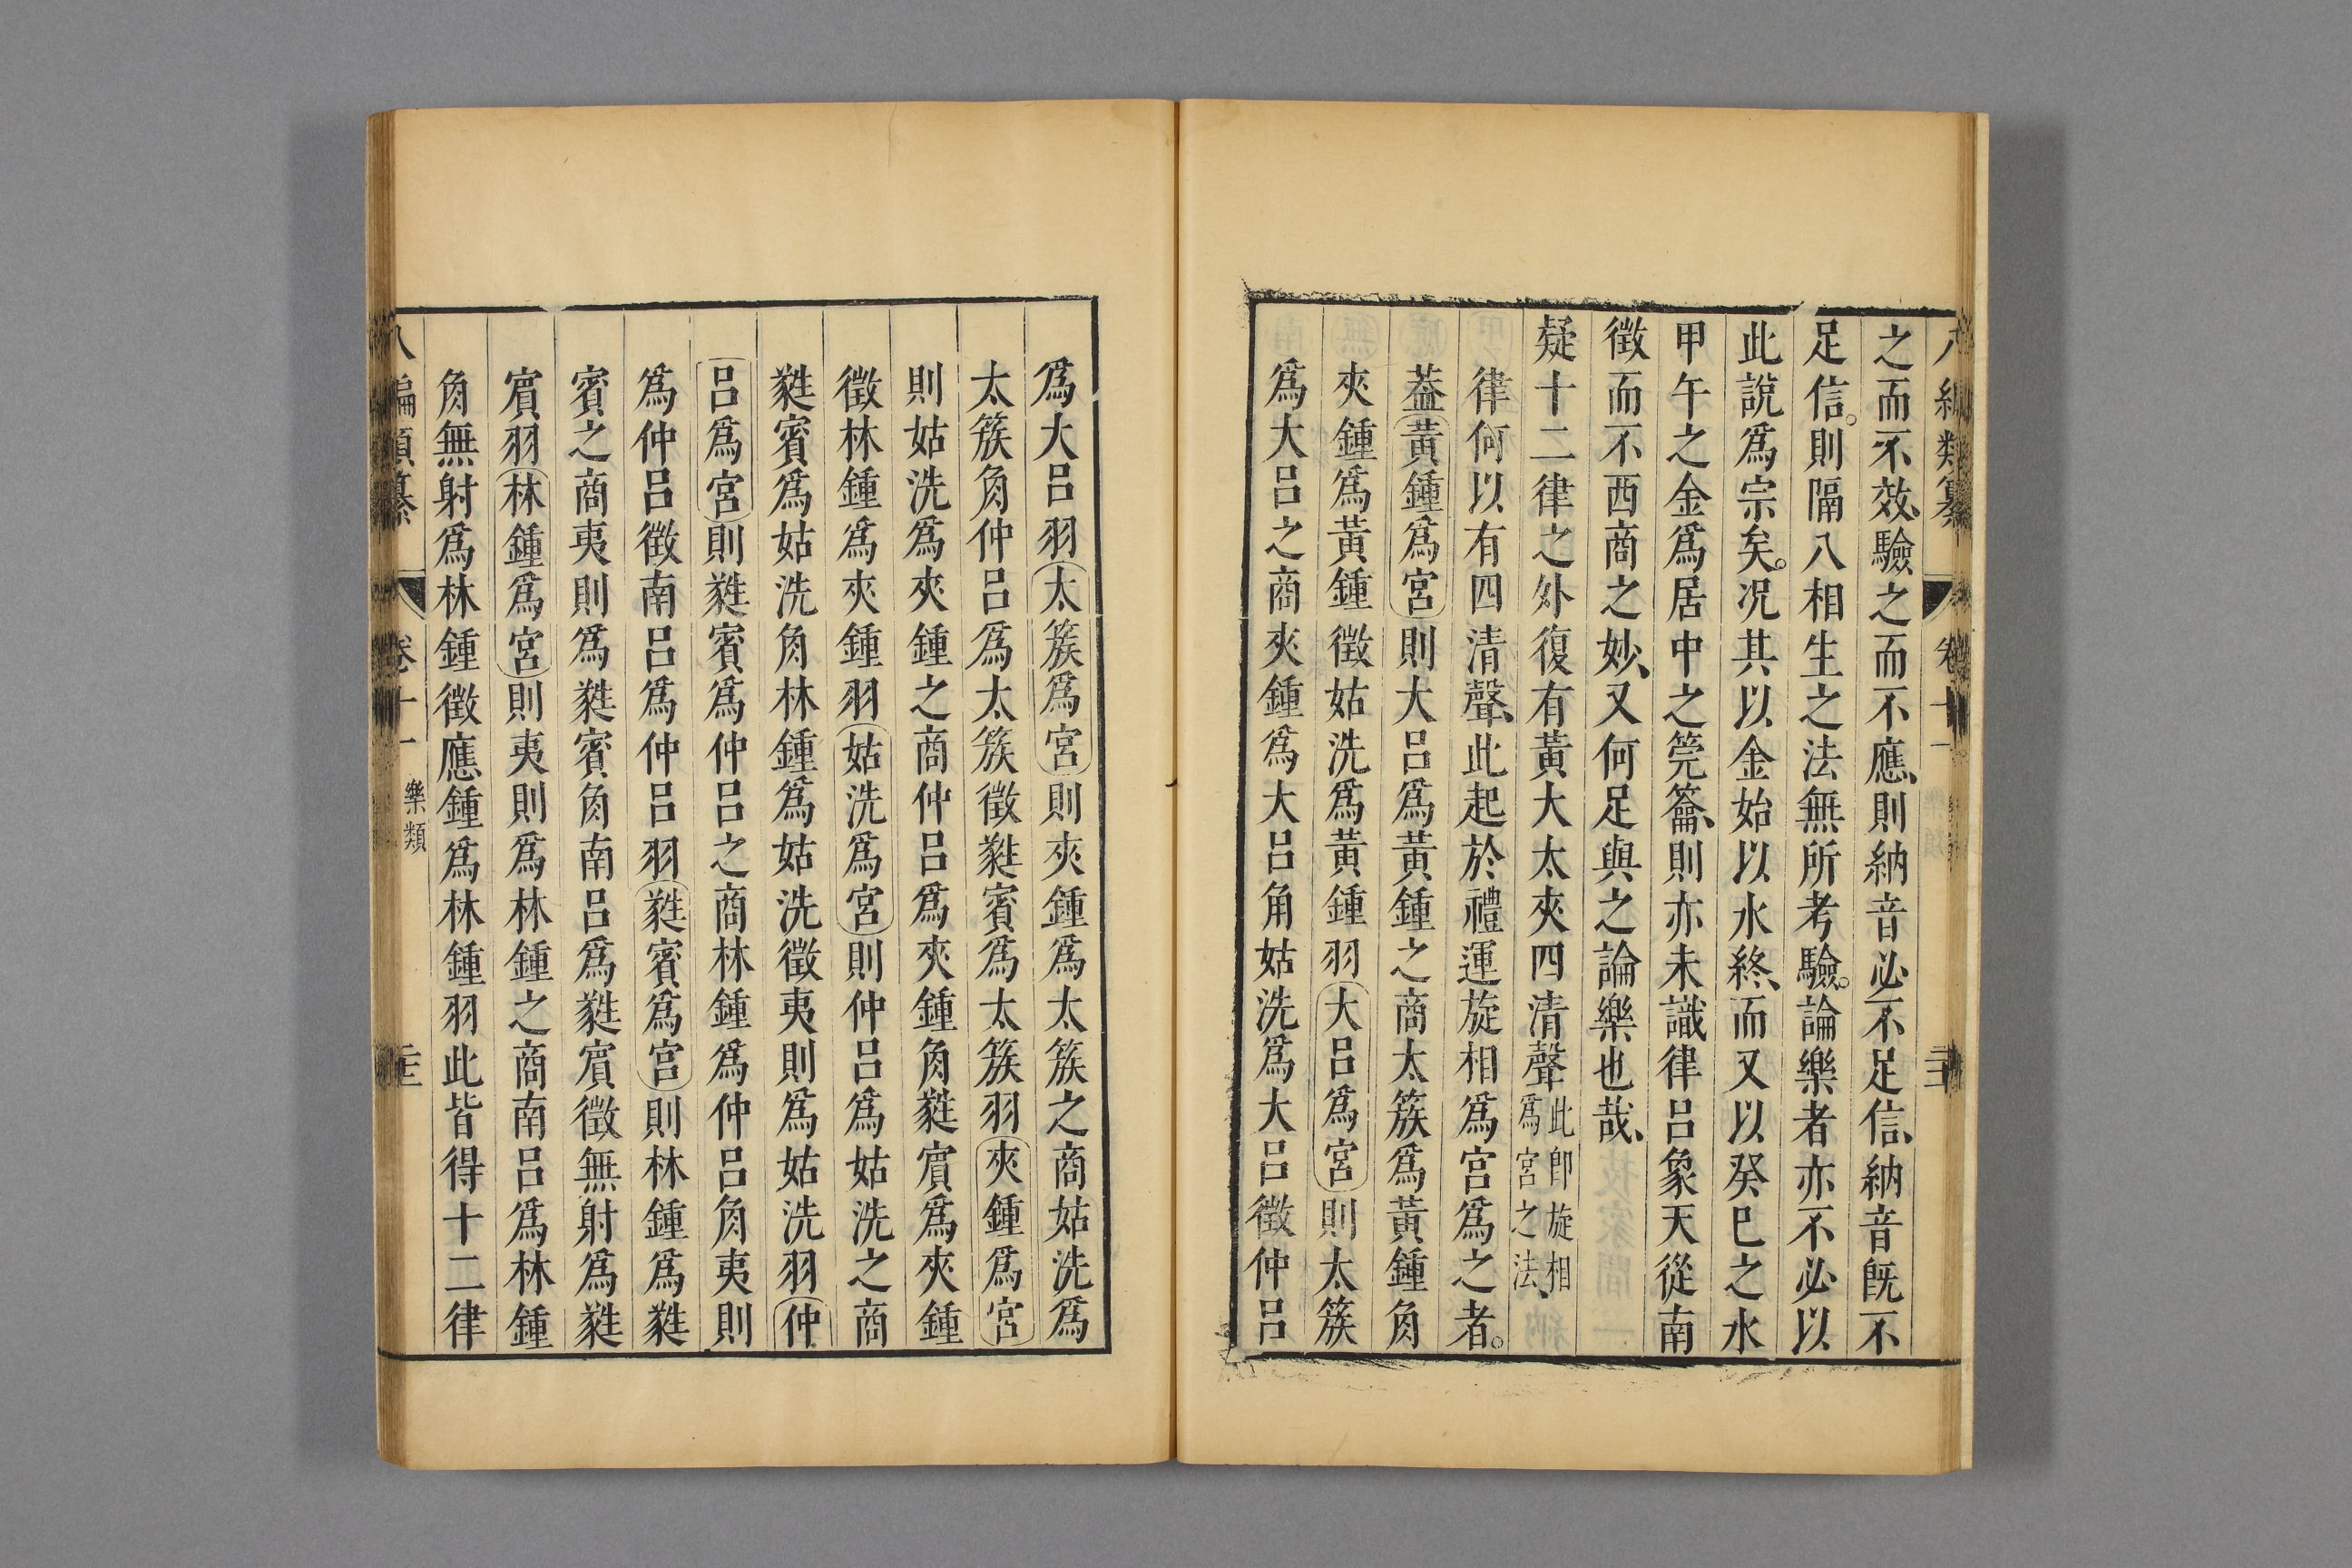 八編類纂 卷十一
之而不效驗之而不應、則納音必不足信、納音旣不
足信。則隔八相生之法無所考驗。論樂者亦不必以
此說爲宗矣。况其以金始以水終、而又以癸巳之水
甲午之金爲居中之筦籥、則亦未識律呂象天從南
徵而不西商之妙、又何足與之論樂也哉、
疑十二律之外復有黃大太夾四清聲此卽旋相爲宮之法、
律何以有四清聲、此起於禮運旋相爲宮爲之者。
葢黃鍾爲宮則大呂爲黃鍾之商太簇爲黃鍾角
夾鍾爲黃鍾徵姑洗爲黃鍾羽大呂爲宮則太簇
爲大呂之商夾鍾爲大呂角姑洗爲大呂徵仲呂
爲大呂羽太簇爲宮則夾鍾爲太簇之商姑洗爲
太簇角仲呂爲太簇徵蕤賓爲太簇羽夾鍾爲宮
則姑洗爲夾鍾之商仲呂爲夾鍾角蕤賔爲夾鍾
徵林鍾爲夾鍾羽姑洗爲宮則仲呂爲姑洗之商
蕤賓爲姑洗角林鍾爲姑洗徵夷則爲姑洗羽仲
呂爲宮則蕤賓爲仲呂之商林鍾爲仲呂角夷則
爲仲呂徵南呂爲仲呂羽蕤賓爲宮則林鍾爲蕤
賓之商夷則爲蕤賓角南呂爲蕤賔徵無射爲蕤
賔羽林鍾爲宮則夷則爲林鍾之商南呂爲林鍾
角無射爲林鍾徵應鍾爲林鍾羽此皆得十二律
八編類纂 卷十一 樂類